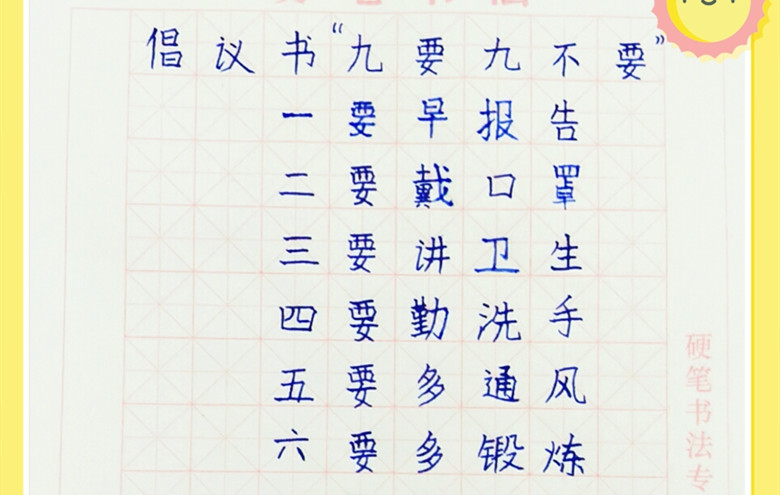 倡议书“九要九不要”
一要早报告
二要戴口罩
三要讲卫生
四要勤洗手
五要多通风
六要多锻炼
硬笔书法专